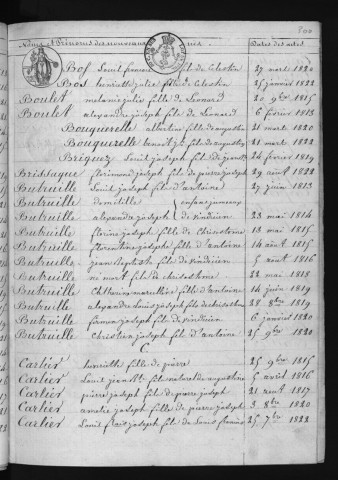 Noms et Prénoms des nouveaux nés Dates des actes
Bos Louis fils de Celestin 27 mars 1820
Bos henriette julie fille de Celestin 25 janvier 1822
Boulet melanie julie fille de Leonard 20 9bre 1815
Boulet alexandre joseph fils de Leonard 6 fevrier 1813
Bouquerelle albertine fille de augustin 21 mars 1820
Bouquerelle benoit jh fils de augustin 21 mars 1822
Briquez Louis joseph fils de 24 fevrier 1819
florimond joseph fils de pierre joseph 29 aout 1822
Butruille Louis joseph fils d'antoine 27 juin 1813
Butruille domitille enfans jumeaux
Butruille alexandre joseph de vindicien 23 mai 1814
Butruille florine joseph fille de Chrisostome 13 mai 1815
Butruille florentine joseph fille d'antoine 14 aout 1815
Butruille jean baptiste fils de vindicien 5 aout 1816
Butruille né mort fils de chrisostome 22 mai 1818
Butruille Catherine fille d'antoine 14 juin 1819
Butruille alexandre Louis joseph 28 8bre 1819
Butruille firmin joseph fils de vindicien 6 janvier 1820
Butruille Christian joseph fils d'antoine 25 9bre 1820
C
Cartier henriette fille de pierre 25 9bre 1815
Cartier Louis jean Bte fils naturel de augustine 5 avril 1816
Cartier pierre joseph fils de pierre joseph 21 aout 1817
Cartier amelie joseph fille de pierre joseph 3 8bre 1820
Cartier Louis frais joseph fils de Louis francois 25 7bre 1822